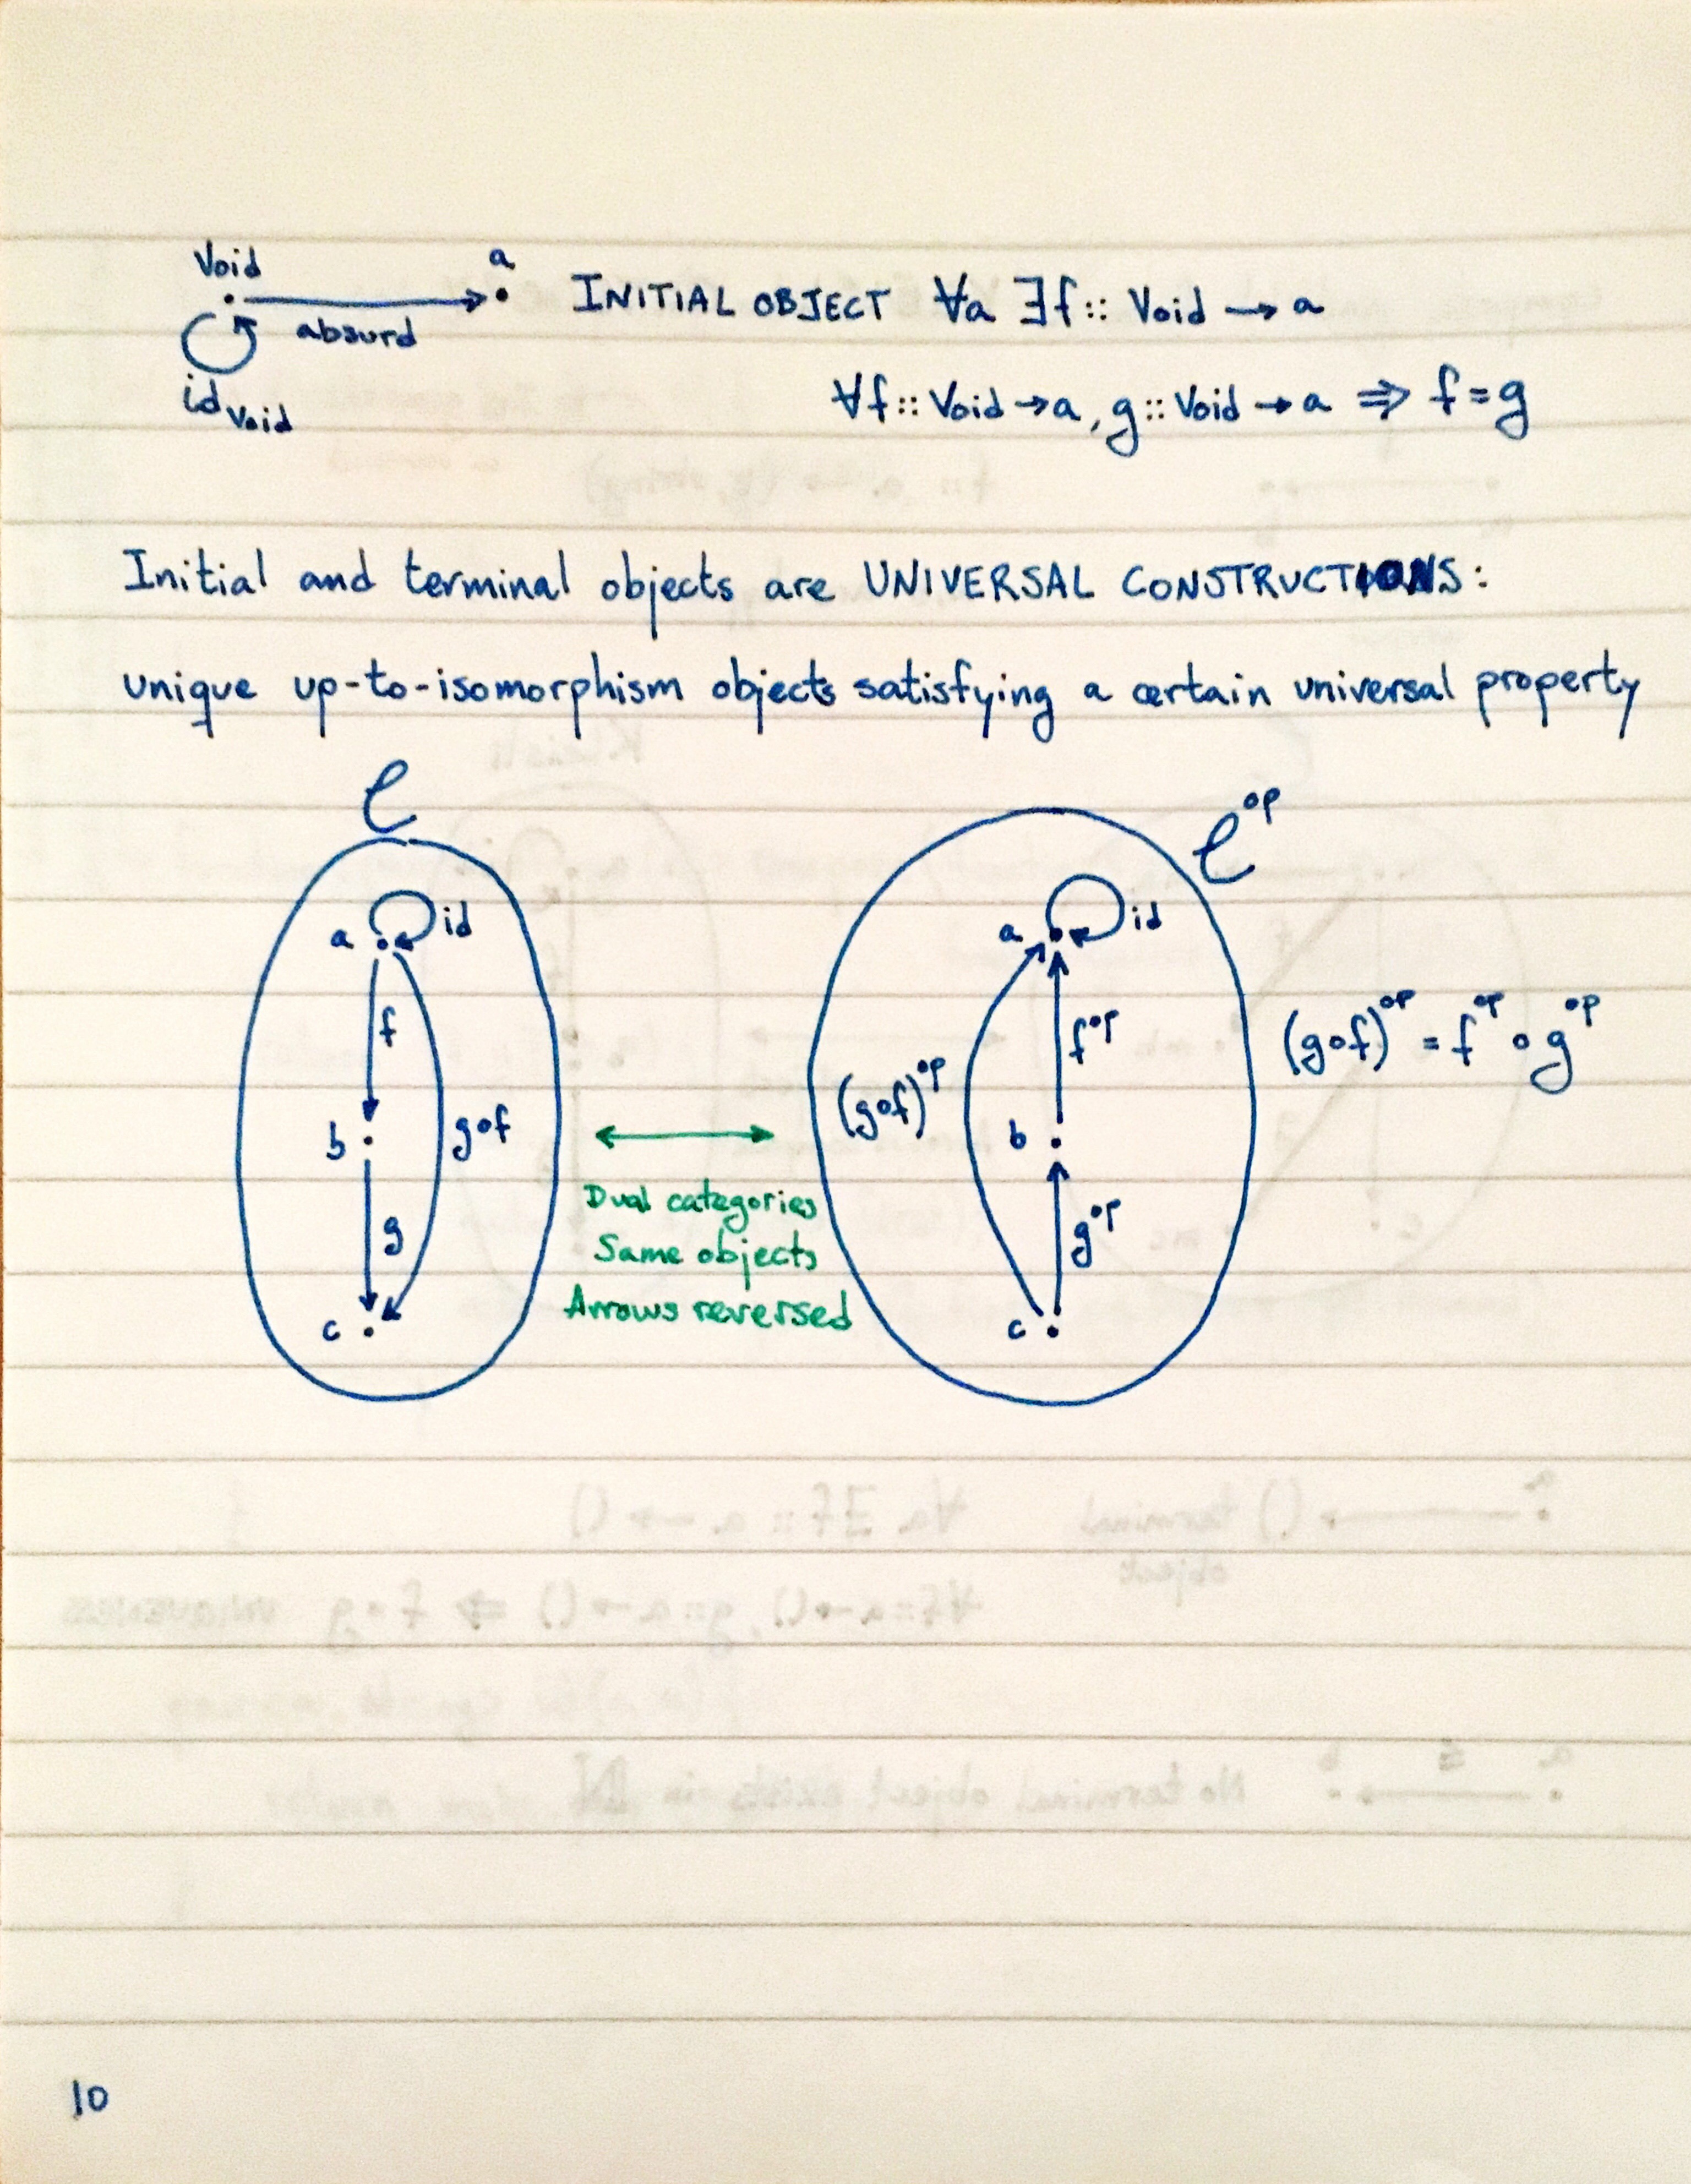 Void a INITIAL OBJECT ∀a ∃f :: Void → a
absurd
id Void
∀f :: Void → a, g :: Void → a ⇒ f = g
Initial and terminal objects are UNIVERSAL CONSTRUCTIONS:
unique up-to-isomorphism objects satisfying a certain universal property
C
a id
f
b g∘f
g
c
Dual categories
Same objects
Arrows reversed
C^op
a id
f^op
(g∘f)^op
b
g^op
c
(g∘f)^op = f^op ∘ g^op
10